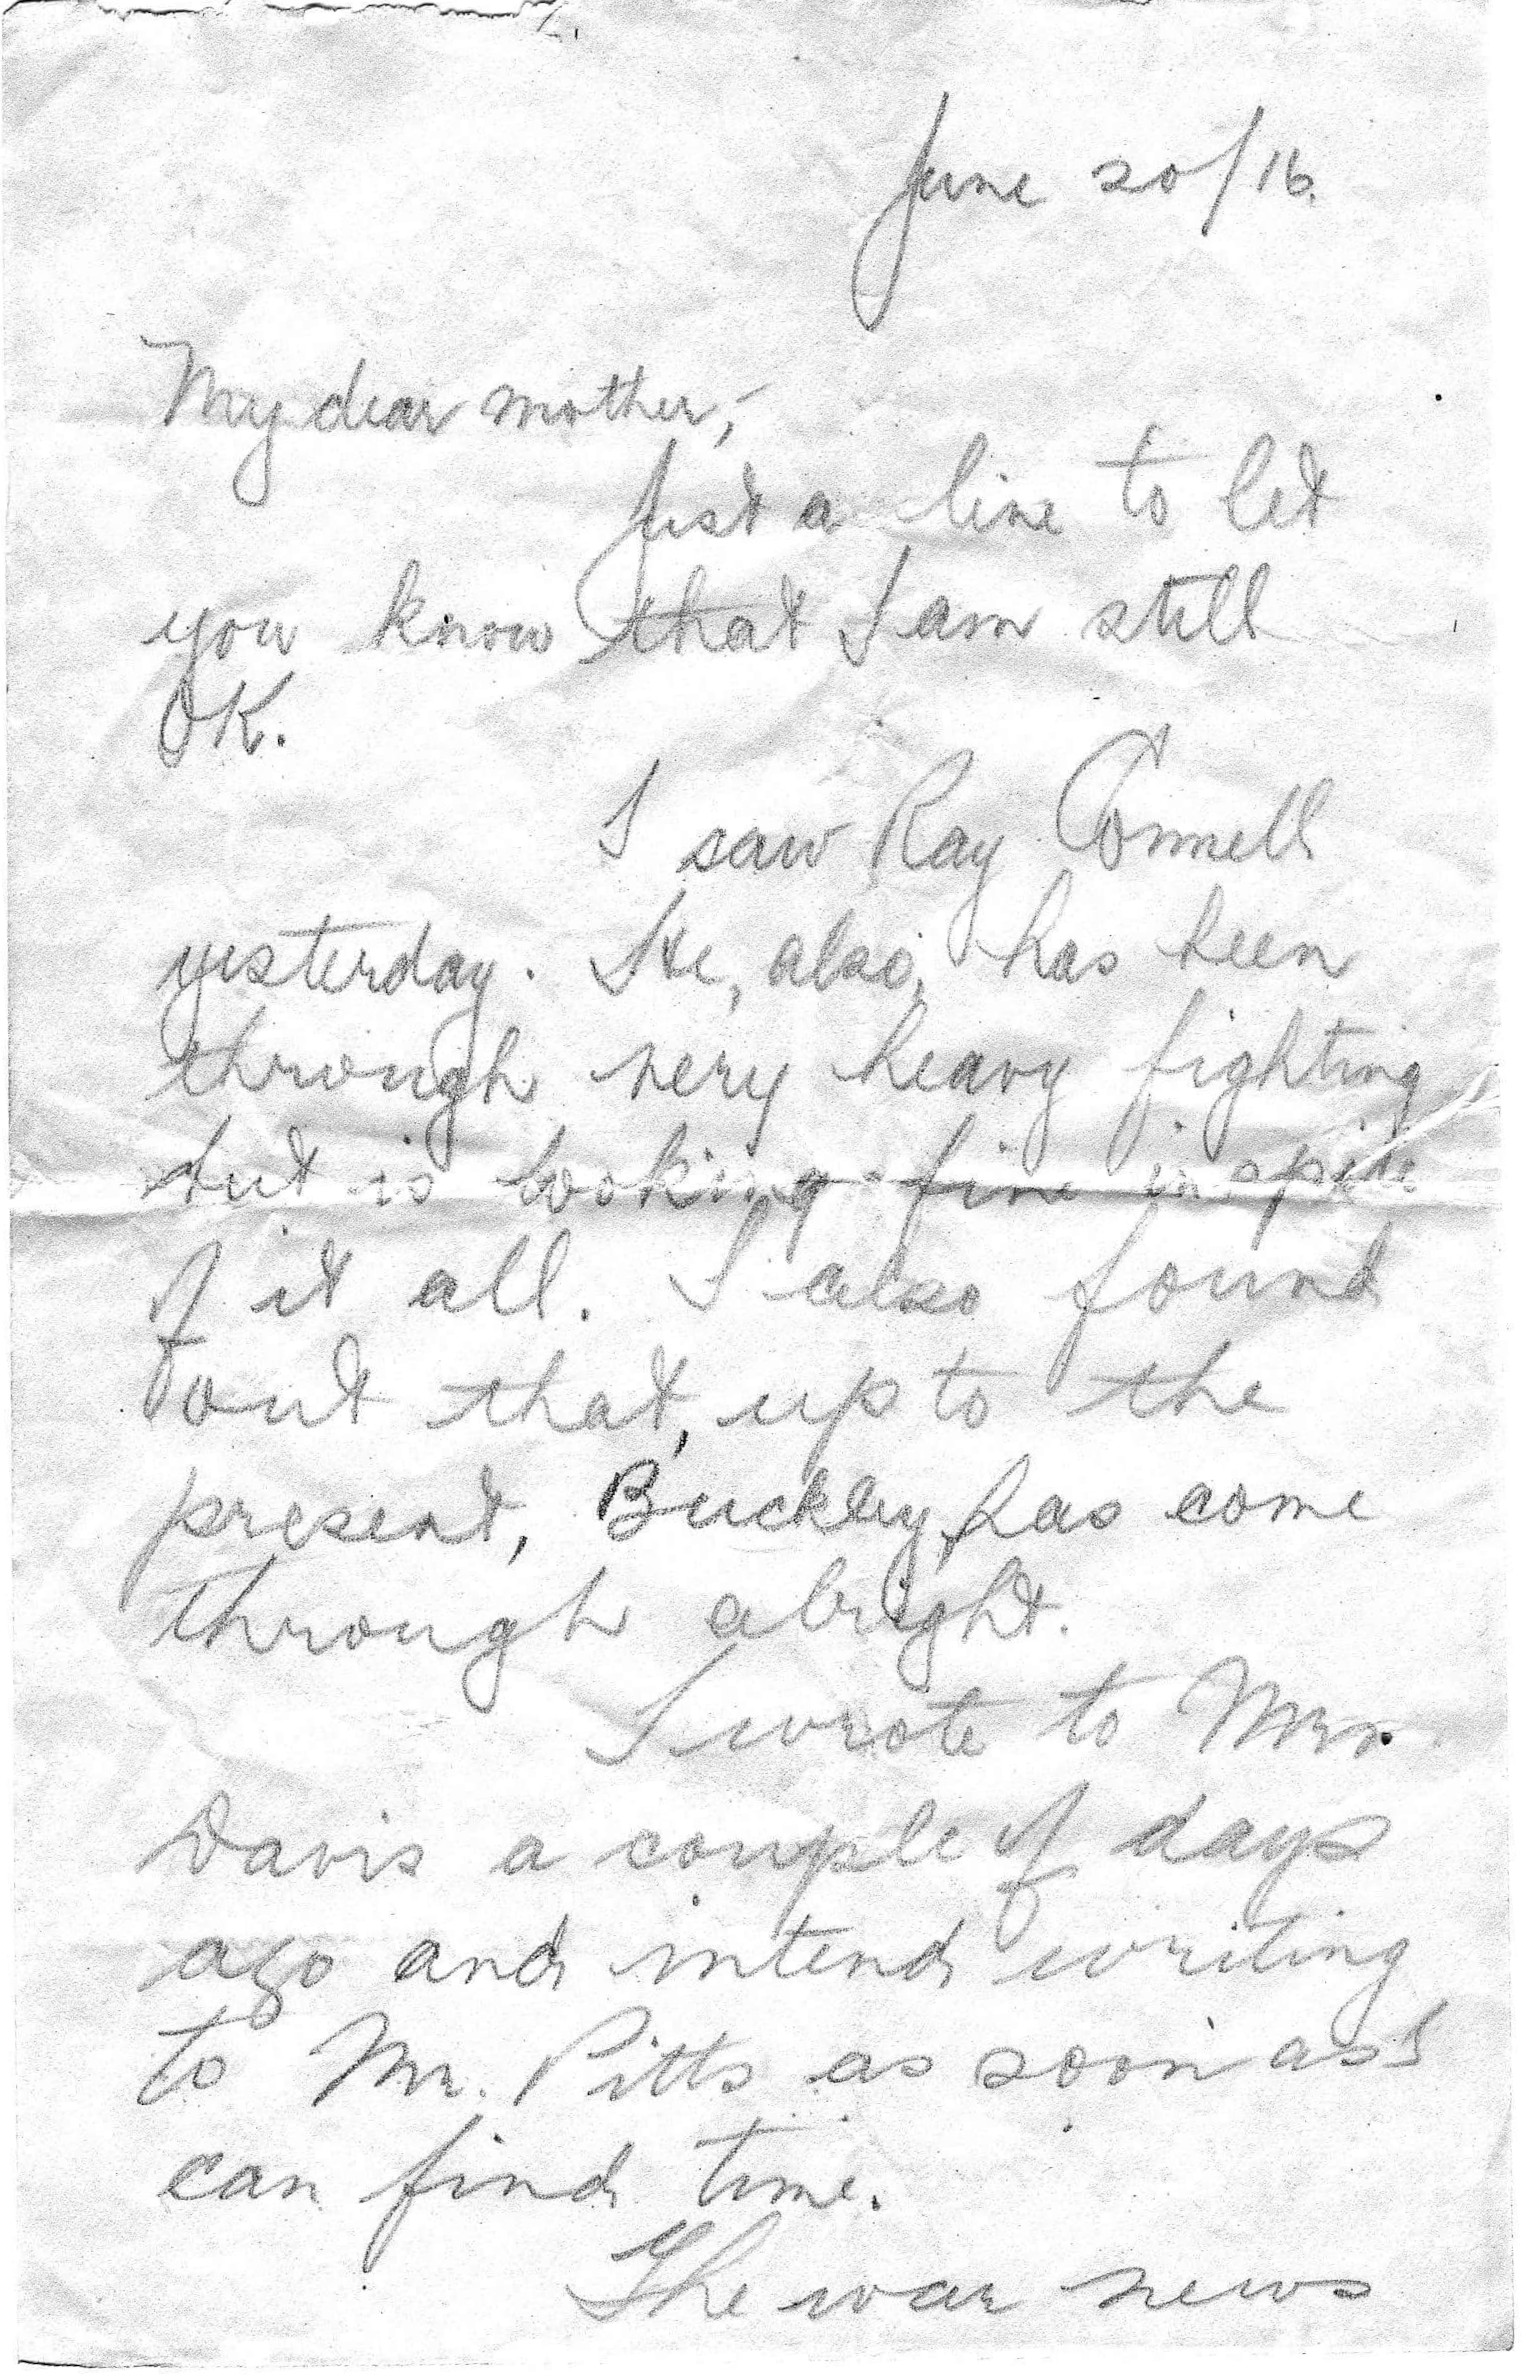 June 20/16.
My dear mother,-
Just a line to let
you know that I am still
OK.
I saw Ray Connell
yesterday. He, also, has been
through very heavy fighting
but is looking fine in spite
of it all. I also found
out that, up to the
present, Buckley, has come
through alright.
I wrote to Mrs.
Davis a couple of days
ago and intend writing
to Mr. Pitts as soon as I
can find time.
The war news